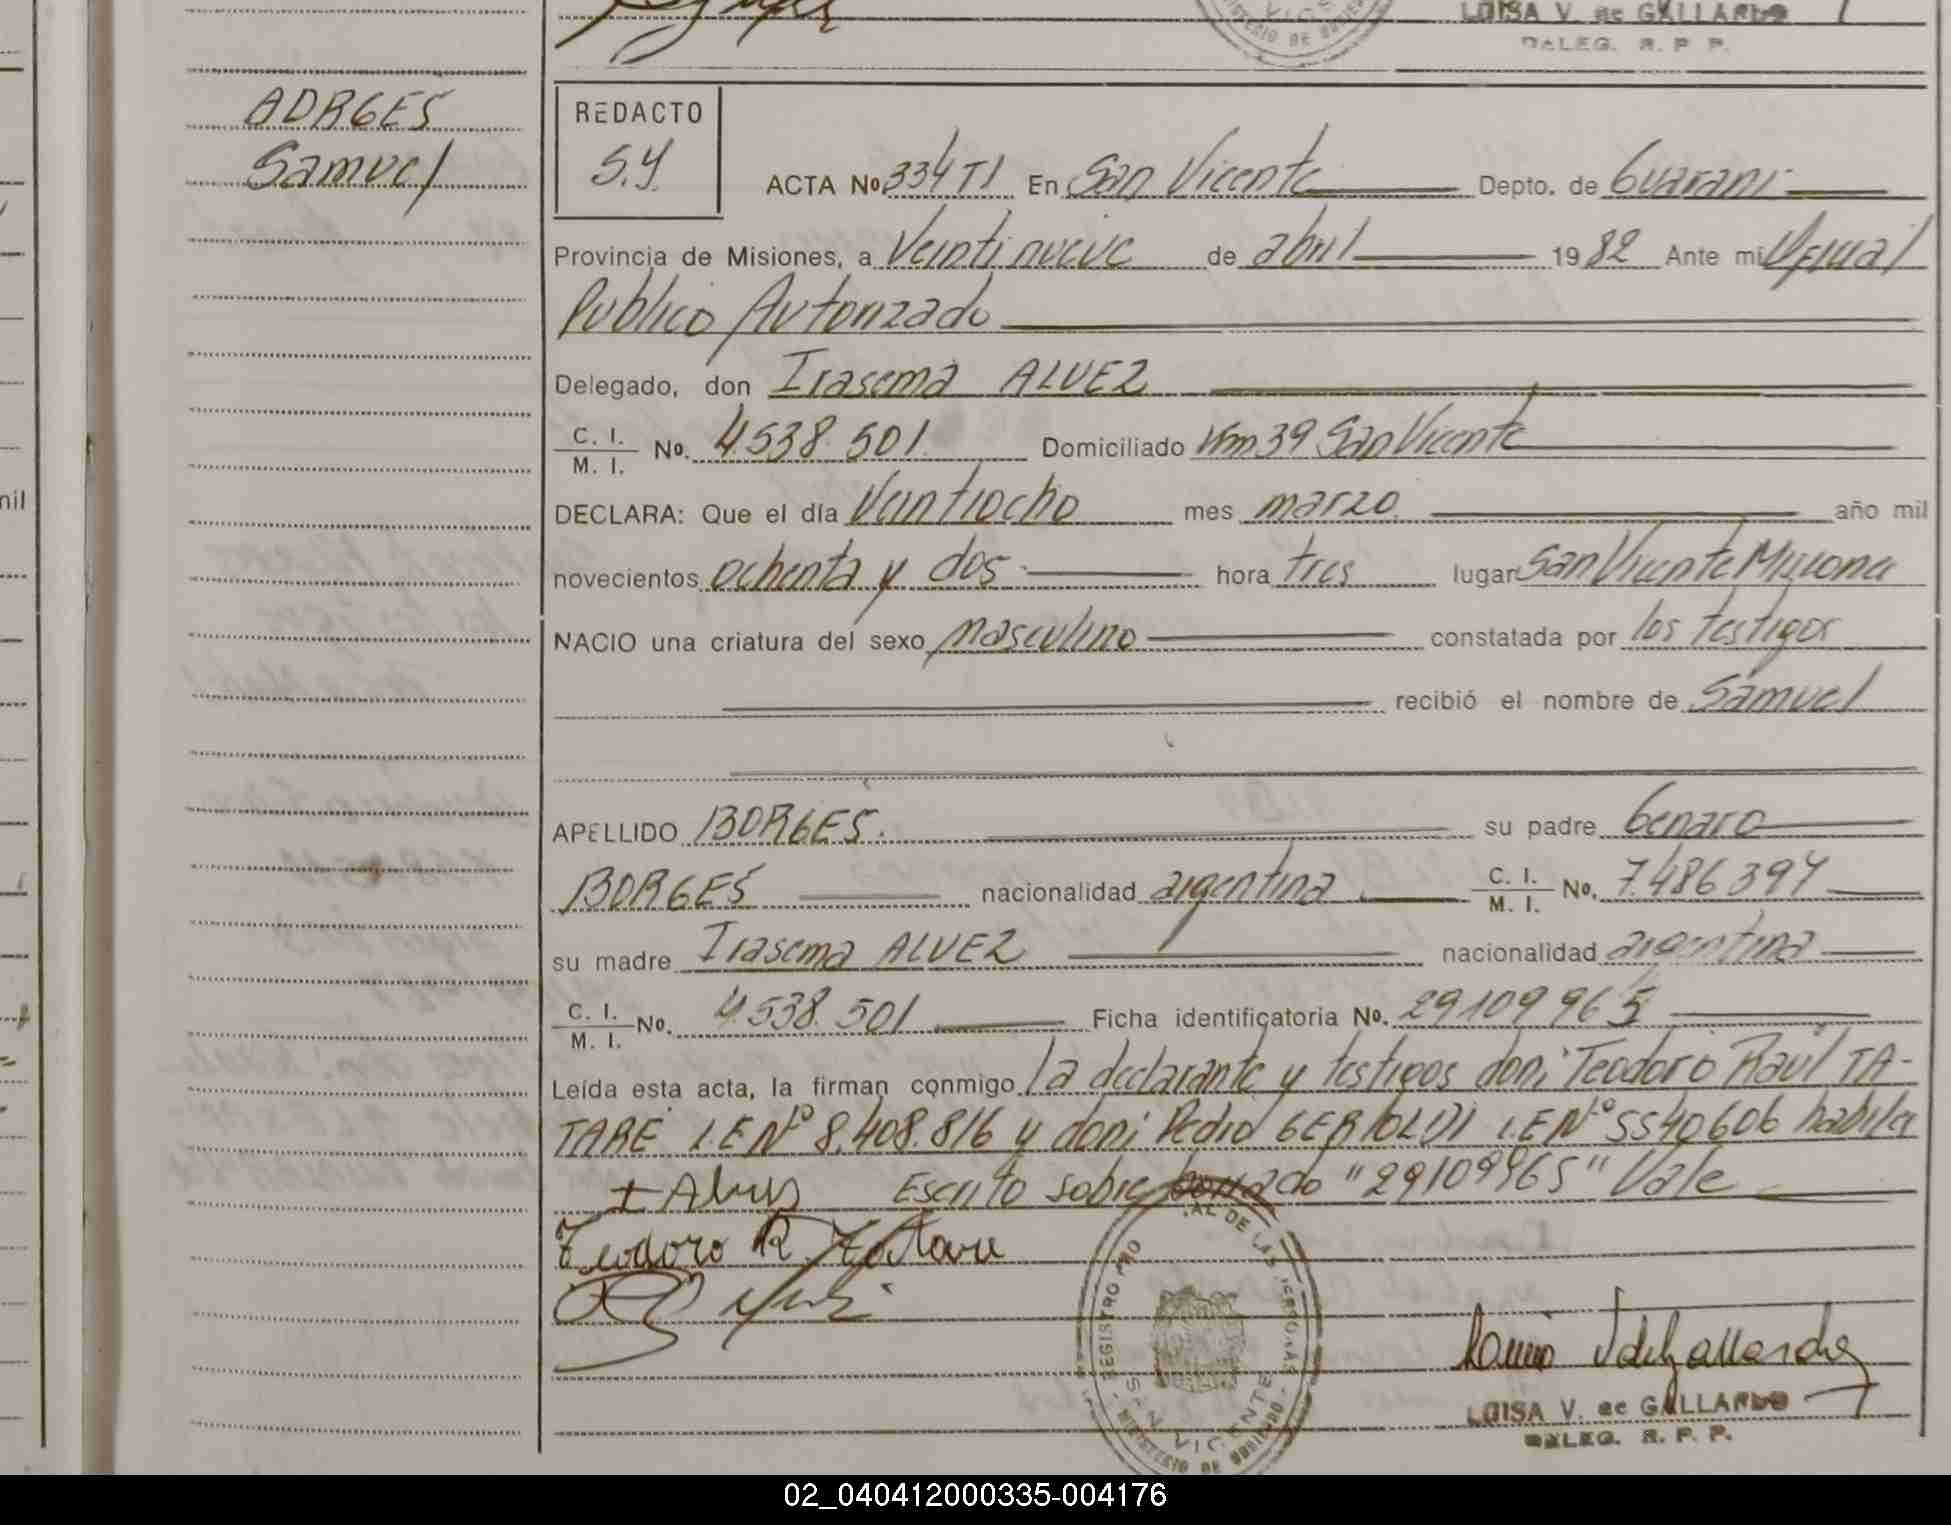 LUISA V. de GALLARDO
DALEG. R. P. P.
BORGES
Samuel
REDACTO
S.Y.
ACTA No. 334 TI En San Vicente Depto. de Guarani
Provincia de Misiones, a Veintinueve de abril 1982 Ante mi Oficial
Publico Autorizado
Delegado, don Irasema ALVEZ
C. I. / M. I. No. 4.538.501 Domiciliado Km 39 San Vicente
DECLARA: Que el día Veintiocho mes marzo año mil
novecientos ochenta y dos hora tres lugar San Vicente Misiones
NACIO una criatura del sexo masculino constatada por los testigos
recibió el nombre de Samuel
APELLIDO BORGES. su padre Genaro
BORGES nacionalidad argentina C. I. / M. I. No. 7.486.394
su madre Irasema ALVEZ nacionalidad argentina
C. I. / M. I. No. 4.538.501 Ficha identificatoria No. 29109965
Leída esta acta, la firman conmigo la declarante y testigos don: Teodoro Raúl TA-
TARE L.E Nº 8.408.816 y don: Pedro BERTOLDI L.E Nº 5540606 habiles
+ Alves Escrito sobre borrado "29109965" Vale
Teodoro R. Tatare
REGISTRO PRO AL DE LAS PERSONAS
SAN VICENTE
MINISTERIO DE GOBIERNO
LUISA V. de GALLARDO
DALEG. R. P. P.
nil
02_040412000335-004176